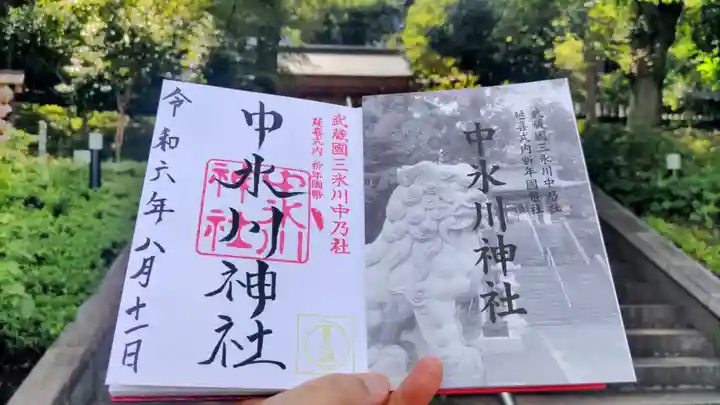 武蔵國三氷川中乃社
延喜式内 祈年國幣
中氷川神社
中氷川
神社
令和六年八月十一日
武蔵國三氷川中乃社
延喜式内祈年國幣社
中氷川神社